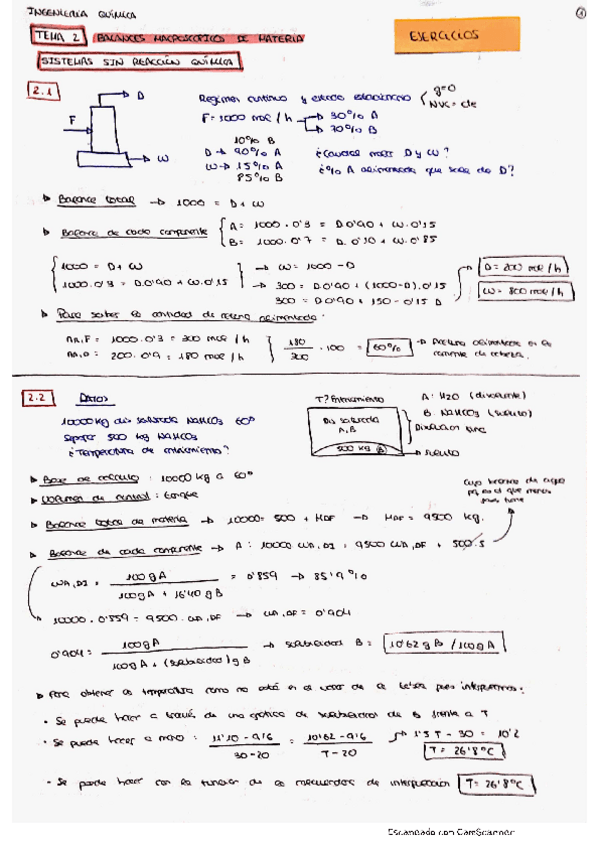 INGENIERÍA QUÍMICA
1
TEMA 2 BALANCES MACROSCÓPICOS DE MATERIA
EJERCICIOS
SISTEMAS SIN REACCIÓN QUÍMICA
2.1
D
F
W
Régimen continuo y estado estacionario
F = 1000 mol/h
30% A
70% B
10% B
D → 90% A
W → 15% A
85% B
¿Caudal D y W?
¿% A alimentada que sale de D?
▸ Balance total → 1000 = D + W
▸ Balance de cada componente { A: 1000 · 0'3 = D·0'90 + W·0'15
B: 1000 · 0'7 = D·0'10 + W·0'85
1000 = D + W → W = 1000 - D
1000·0'3 = D·0'90 + W·0'15 → 300 = D·0'90 + (1000-D)·0'15
300 = D·0'90 + 150 - 0'15 D
D = 200 mol/h
W = 800 mol/h
▸ Para saber la cantidad de alimentada:
nA,F = 1000·0'3 = 300 mol/h
nA,D = 200·0'9 = 180 mol/h
180/300 · 100 = 60% →
2.2 Datos
10000 kg dis saturada NaHCO3 60º
500 kg NaHCO3
¿Temperatura de?
T? Enfriamiento
Dis saturada
A, B
500 kg B
A: H2O (disolvente)
B: NaHCO3 (soluto)
→ soluto
▸ Base de cálculo: 10000 kg a 60º
▸ Volumen de control: tanque
▸ Balance total de materia → 10000 = 500 + MDF → MDF = 9500 kg.
▸ Balance de cada componente → A: 10000 WA,DI = 9500 WA,DF + 500·
WA,DI = 100 g A / (100 g A + 16'40 g B) = 0'859 → 85'9%
10000·0'859 = 9500·WA,DF → WA,DF = 0'904
0'904 = 100 g A / (100 g A + (solubilidad) g B) → solubilidad B = 10'62 g B / 100 g A
▸ Para obtener la temperatura como no está el valor de la tabla pues interpolamos:
· Se puede hacer a través de una gráfica de solubilidad de B frente a T
· Se puede hacer a mano: (11'10 - 9'6) / (30 - 20) = (10'62 - 9'6) / (T - 20) → 1'5 T - 30 = 10'2
T = 26'8ºC
· Se puede hacer con la función de la calculadora de interpolación T = 26'8ºC
Escaneado con CamScanner